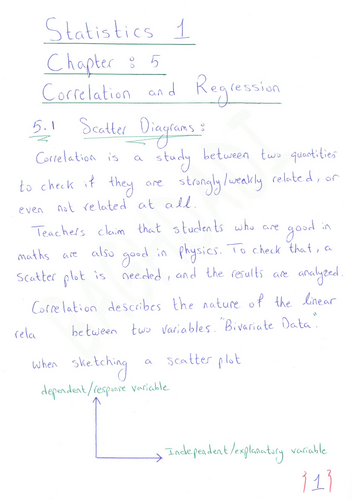 Statistics 1
Chapter : 5
Correlation and Regression
5.1 Scatter Diagrams :
Correlation is a study between two quantities
to check if they are strongly/weakly related, or
even not related at all.
Teachers claim that students who are good in
maths are also good in physics. To check that, a
scatter plot is needed, and the results are analyzed.
Correlation describes the nature of the linear
rela between two variables. "Bivariate Data".
when sketching a scatter plot
dependent/response variable
Independent/explanatory variable
{1}